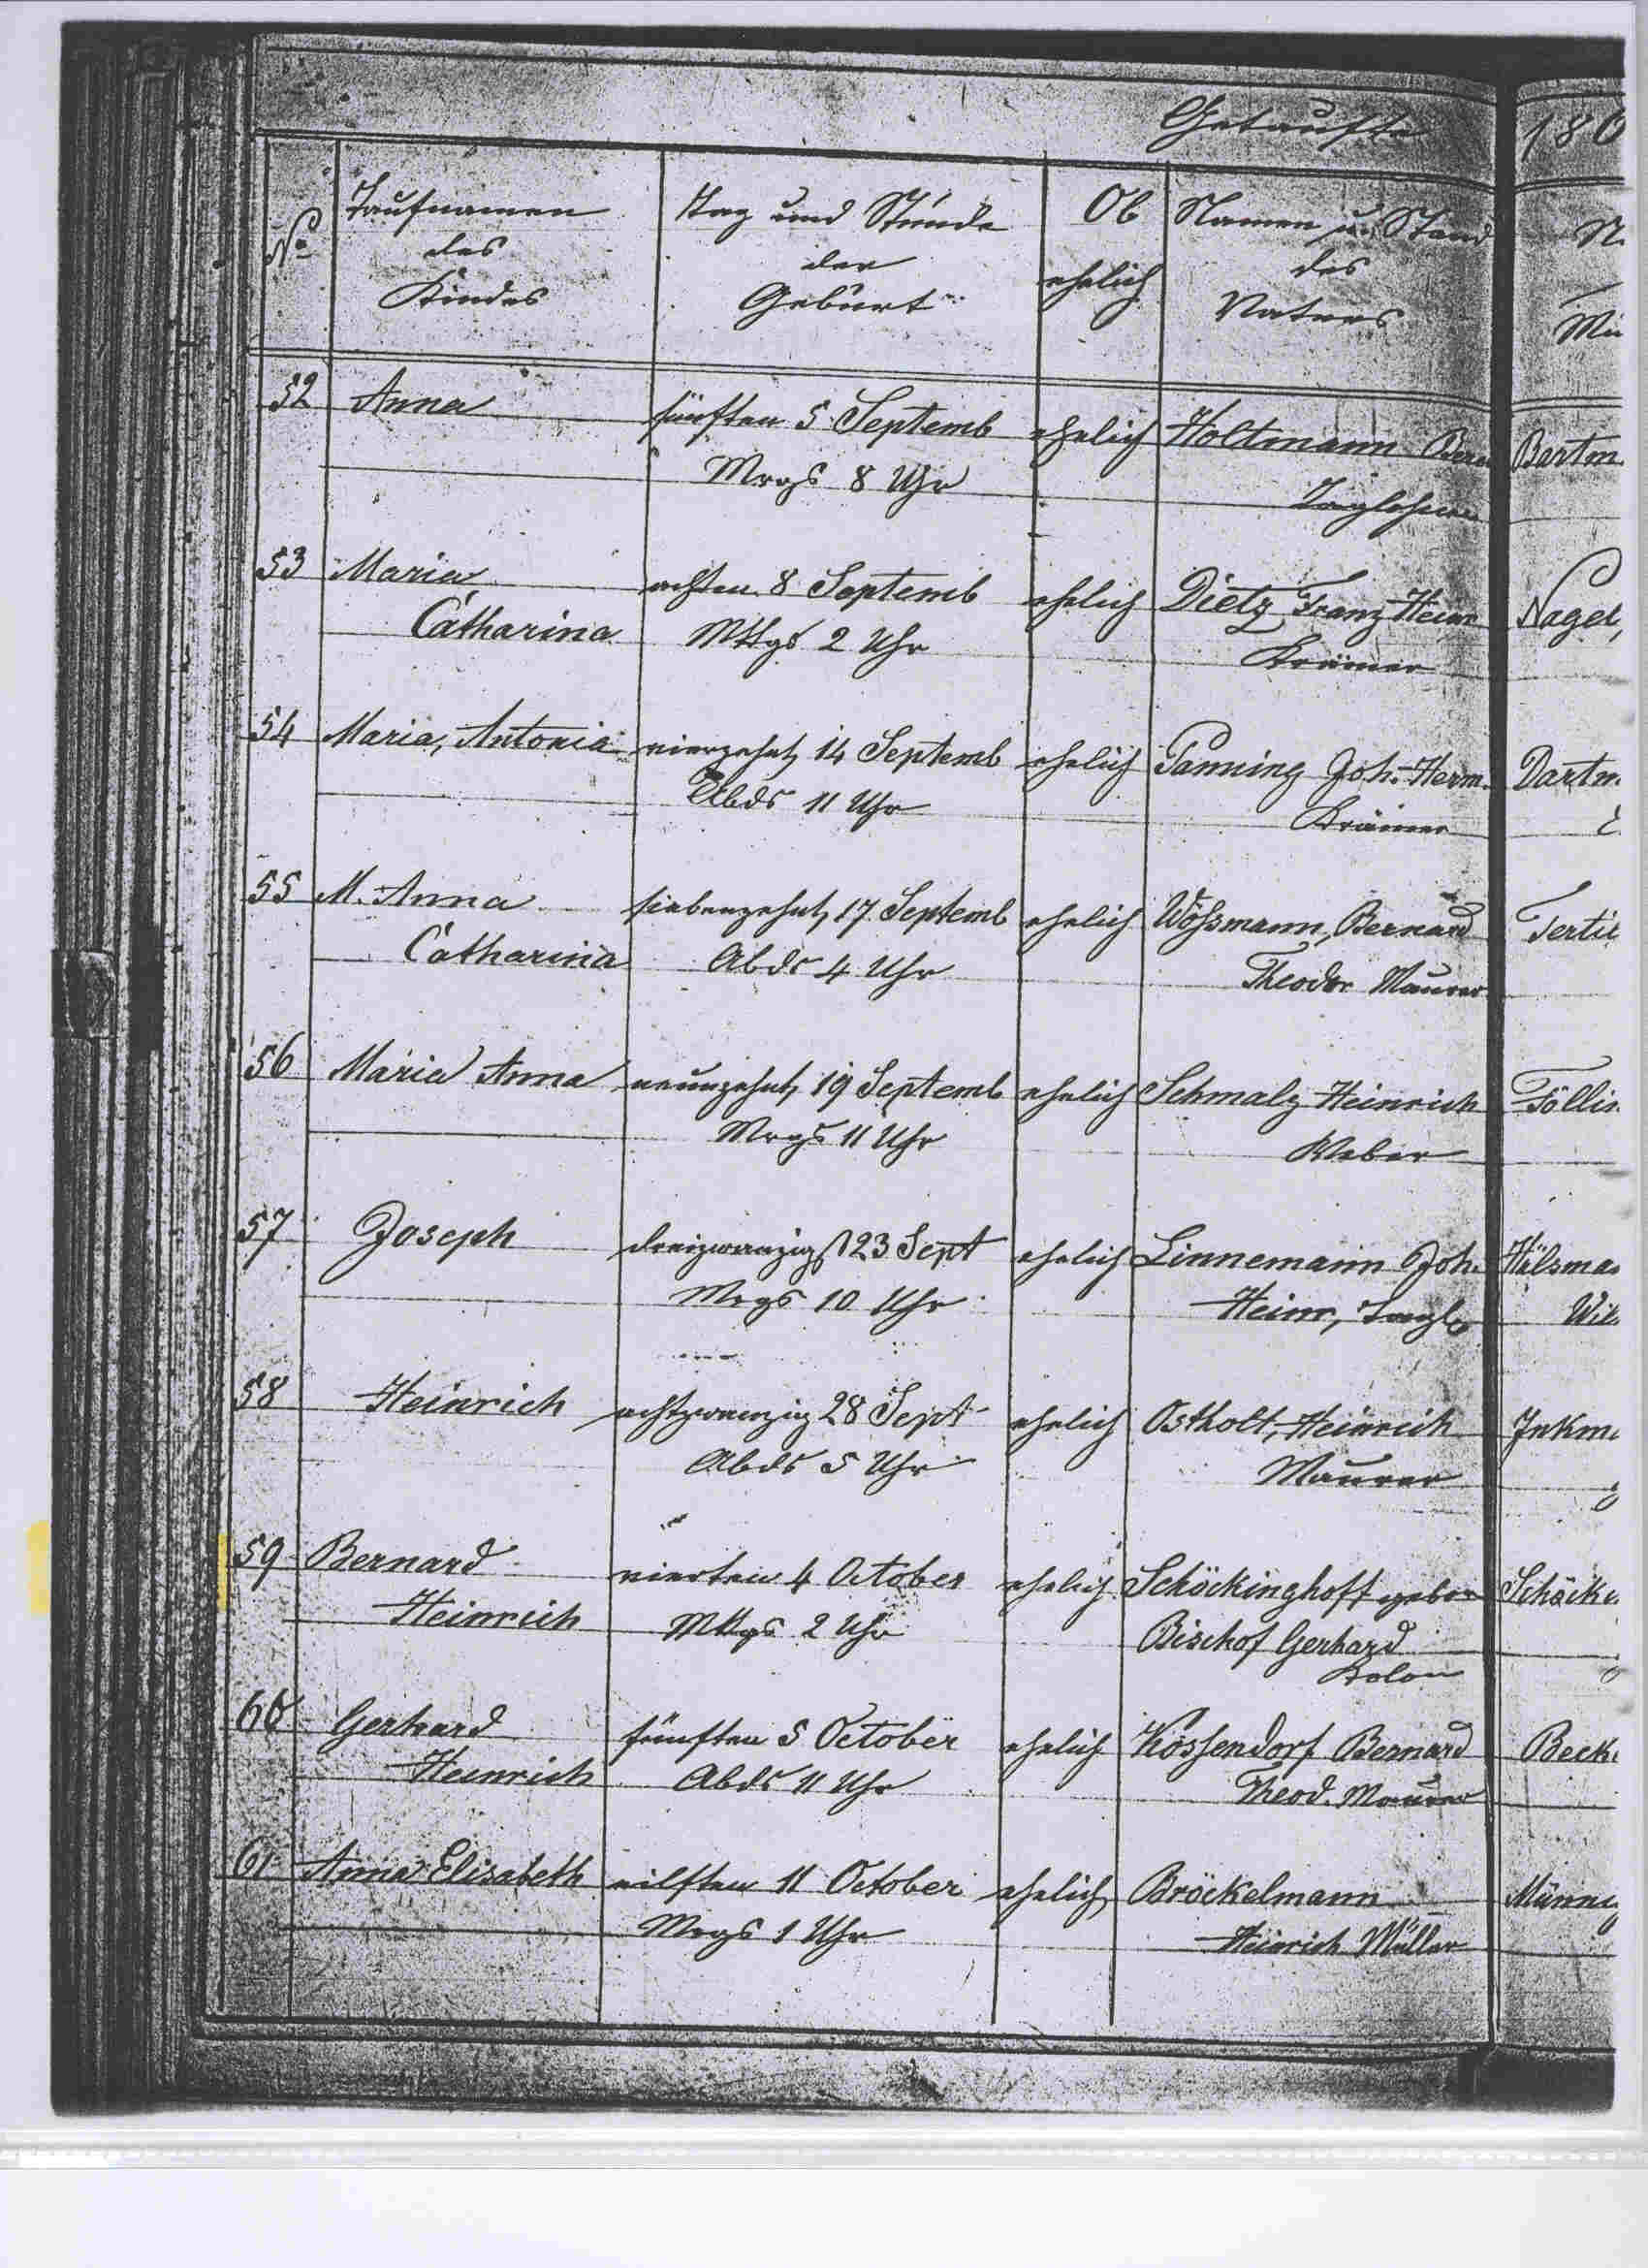 Getaufte 186
No
Taufnamen
des
Kindes
Tag und Stunde
der
Geburt
Ob
ehelich
Namen u. Stand
des
Vaters
52 Anna fünften 5 Septemb ehelich Holtmann Bern Bartm
Mrgs 8 Uhr Taglöhner
53 Maria achten 8 Septemb ehelich Dietz Franz Heinr Nagel,
Catharina Mttgs 2 Uhr Krämer
54 Maria, Antonia vierzehnt, 14 Septemb ehelich Panning Joh. Herm. Dartm
Abds 11 Uhr Krämer
55 M. Anna siebenzehnt, 17 Septemb ehelich Wößmann, Bernard Tertil
Catharina Abds 4 Uhr Theodor Maurer
56 Maria Anna neunzehnt, 19 Septemb ehelich Schmalz Heinrich Föllin
Mrgs 11 Uhr Weber
57 Joseph dreizwanzigst 23 Sept ehelich Linnemann Joh. Hülsman
Mrgs 10 Uhr Heinr, Tagl. Wil
58 Heinrich achtzwanzig 28 Sept ehelich Ostholt, Heinrich Inkm
Abds 5 Uhr Maurer
59 Bernard vierten 4 October ehelich Schöckinghoff gebor Schöck
Heinrich Mttgs 2 Uhr Bischof Gerhard
Kolon
60 Gerhard fünften 5 October ehelich Kössendorf Bernard Beck
Heinrich Abds 11 Uhr Theod. Maurer
61 Anna Elisabeth eilften 11 October ehelich Bröckelmann Münn
Mrgs 1 Uhr Heinrich Müller